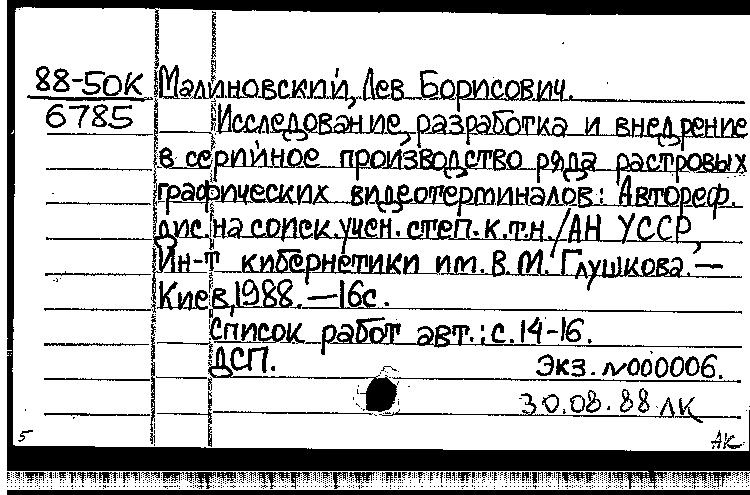 88-50К Малиновский, Лев Борисович.
6785 Исследование, разработка и внедрение
в серийное производство ряда растровых
графических видеотерминалов: Автореф.
дис. на соиск. учен. степ. к.т.н. /АН УССР,
Ин-т кибернетики им. В.М. Глушкова. —
Киев, 1988. — 16с.
Список работ авт.: с. 14-16.
ДСП. Экз. N000006.
30.08.88 ЛК
5 АК